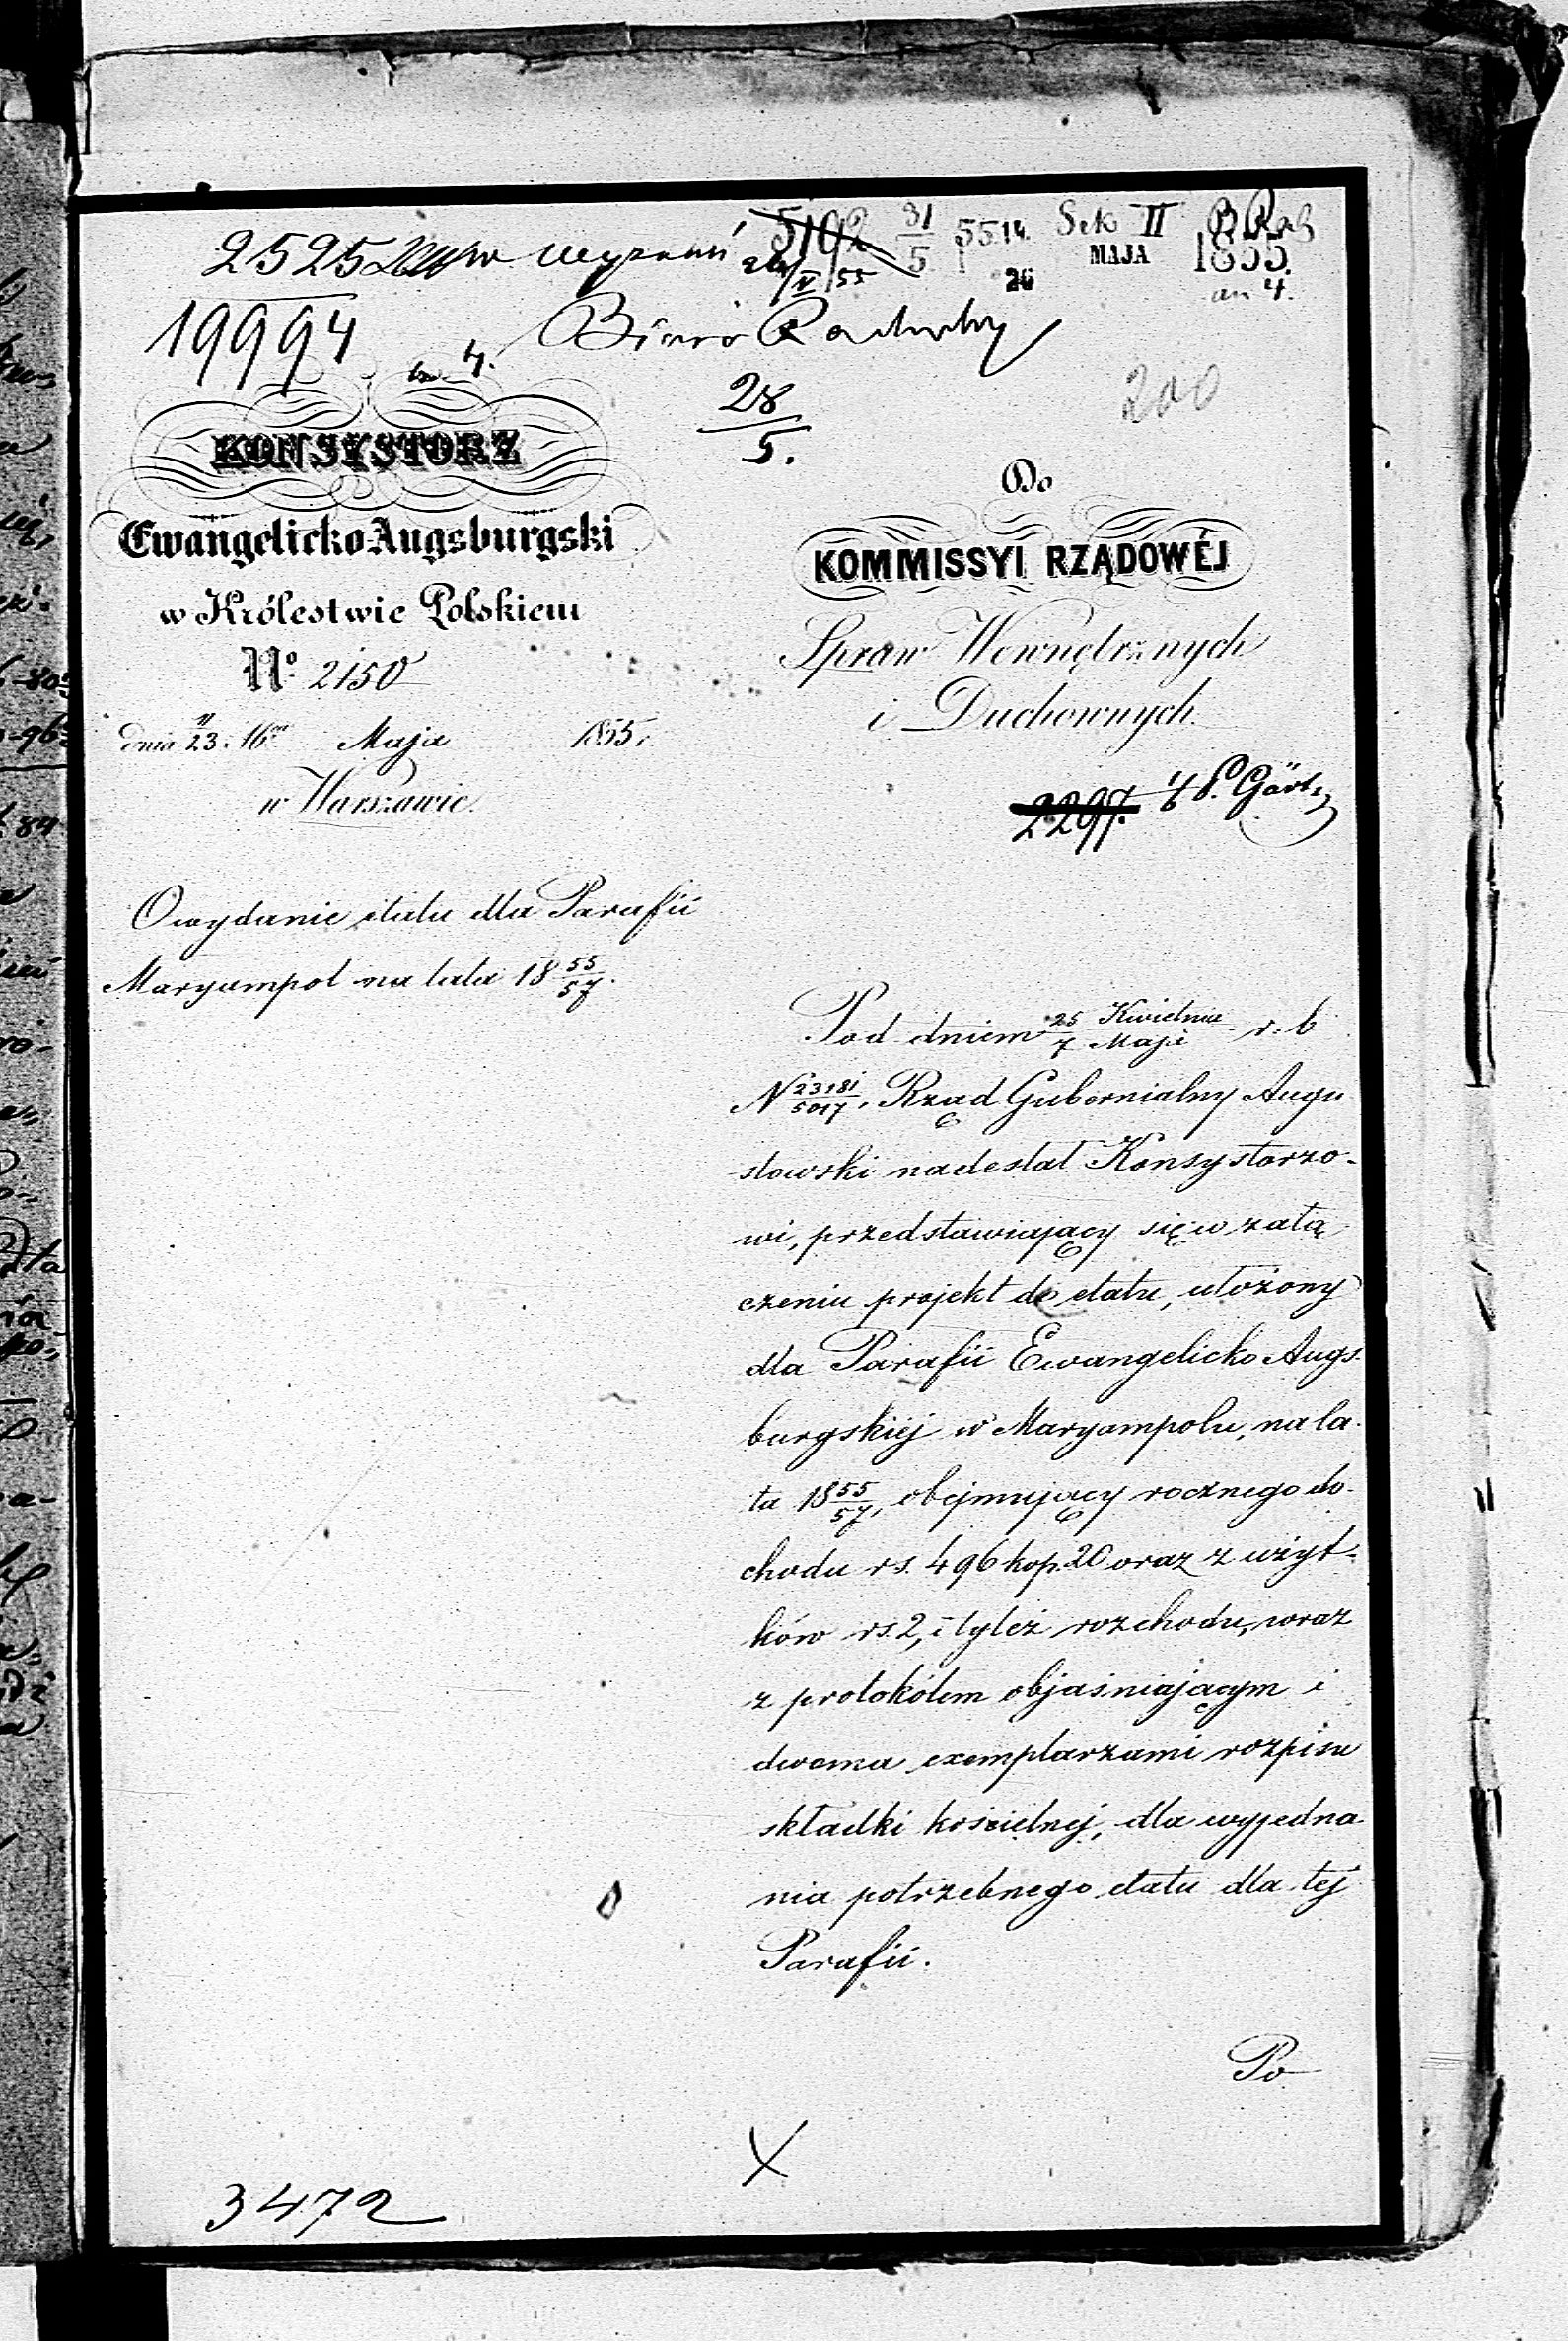 2525 w wyznań 5102 31/5 55.14. Sek II B Rah
24/V/55 26 MAJA 1855.
an 4.
19994 4. Biuro Rachuby
28/5.
200
KONSYSTORZ
Ewangelicko Augsburgski
w Królestwie Polskiem
No 2150
dnia 11/23. 16m Maja 1855 r.
w Warszawie.
Do
KOMMISSYI RZĄDOWÉJ
Spraw Wewnętrznych
i Duchownych.
2297. 4/6 P. Gärt
O wydanie etatu dla Parafii
Maryampol na lata 18 55/57.
Pod dniem 25 Kwietnia/7 Maja r. b
N 23181/5017, Rząd Gubernialny Augu
stowski nadesłał Konsystorzo-
wi, przedstawiający się w załą
czeniu projekt do etatu, ułożony
dla Parafii Ewangelicko Augs-
burgskiéj w Maryampolu, na la-
ta 18 55/57, obejmujący rocznego do-
chodu rs. 496 kop. 20 oraz z użyt-
ków rs. 2, i tyleż rozchodu, wraz
z protokółem objaśniającym i
dwoma exemplarzami rozpisu
składki kościelnej, dla wyjedna
nia potrzebnego etatu dla tej
Parafii.
Po
3472